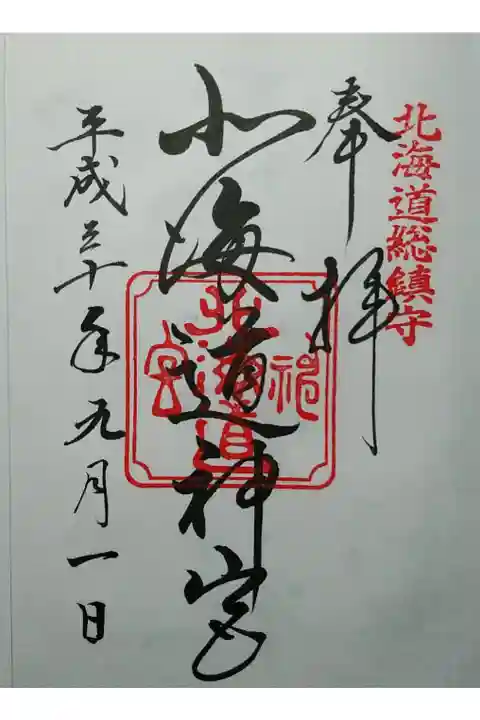 北海道総鎮守
奉拝
北海道神宮
北海道神宮
平成三十年九月一日